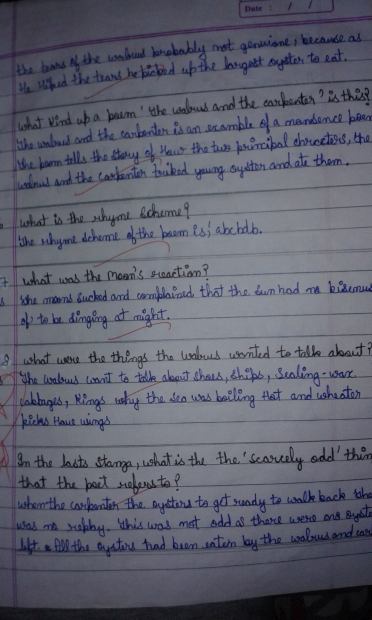 Date : / /
the tears of the walrus probably not genuione; because as
He wiped the tears he picked up the largest oyster to eat.
what kind up a poem 'the walrus and the carpenter'? is this?
the walrus and the carpenter is an example of a nonsence poem
the poem tells the story of How the two principal chracters, the
walrus and the carpenter triked young oyster and ate them.
what is the rhyme Scheme?
the rhyme scheme of the poem is; abcbdb.
7. what was the moon's reaction?
she moons sucked and complained that the sun had no
of to be singing at night.
what were the things the walrus wanted to talk about?
the walrus want to talk about shoes, ships, Sealing-wax
cabbages, kings why the sea was boiling Hot and wheater
wings
In the lasts stanza, what is the the 'scarcely odd' thin
that the poet refers to?
when the carpenter the oysters to get ready to walk back the
was no rephy. this was not odd as there were ono oyste
left All the oysters had been eaten by the walrus and car